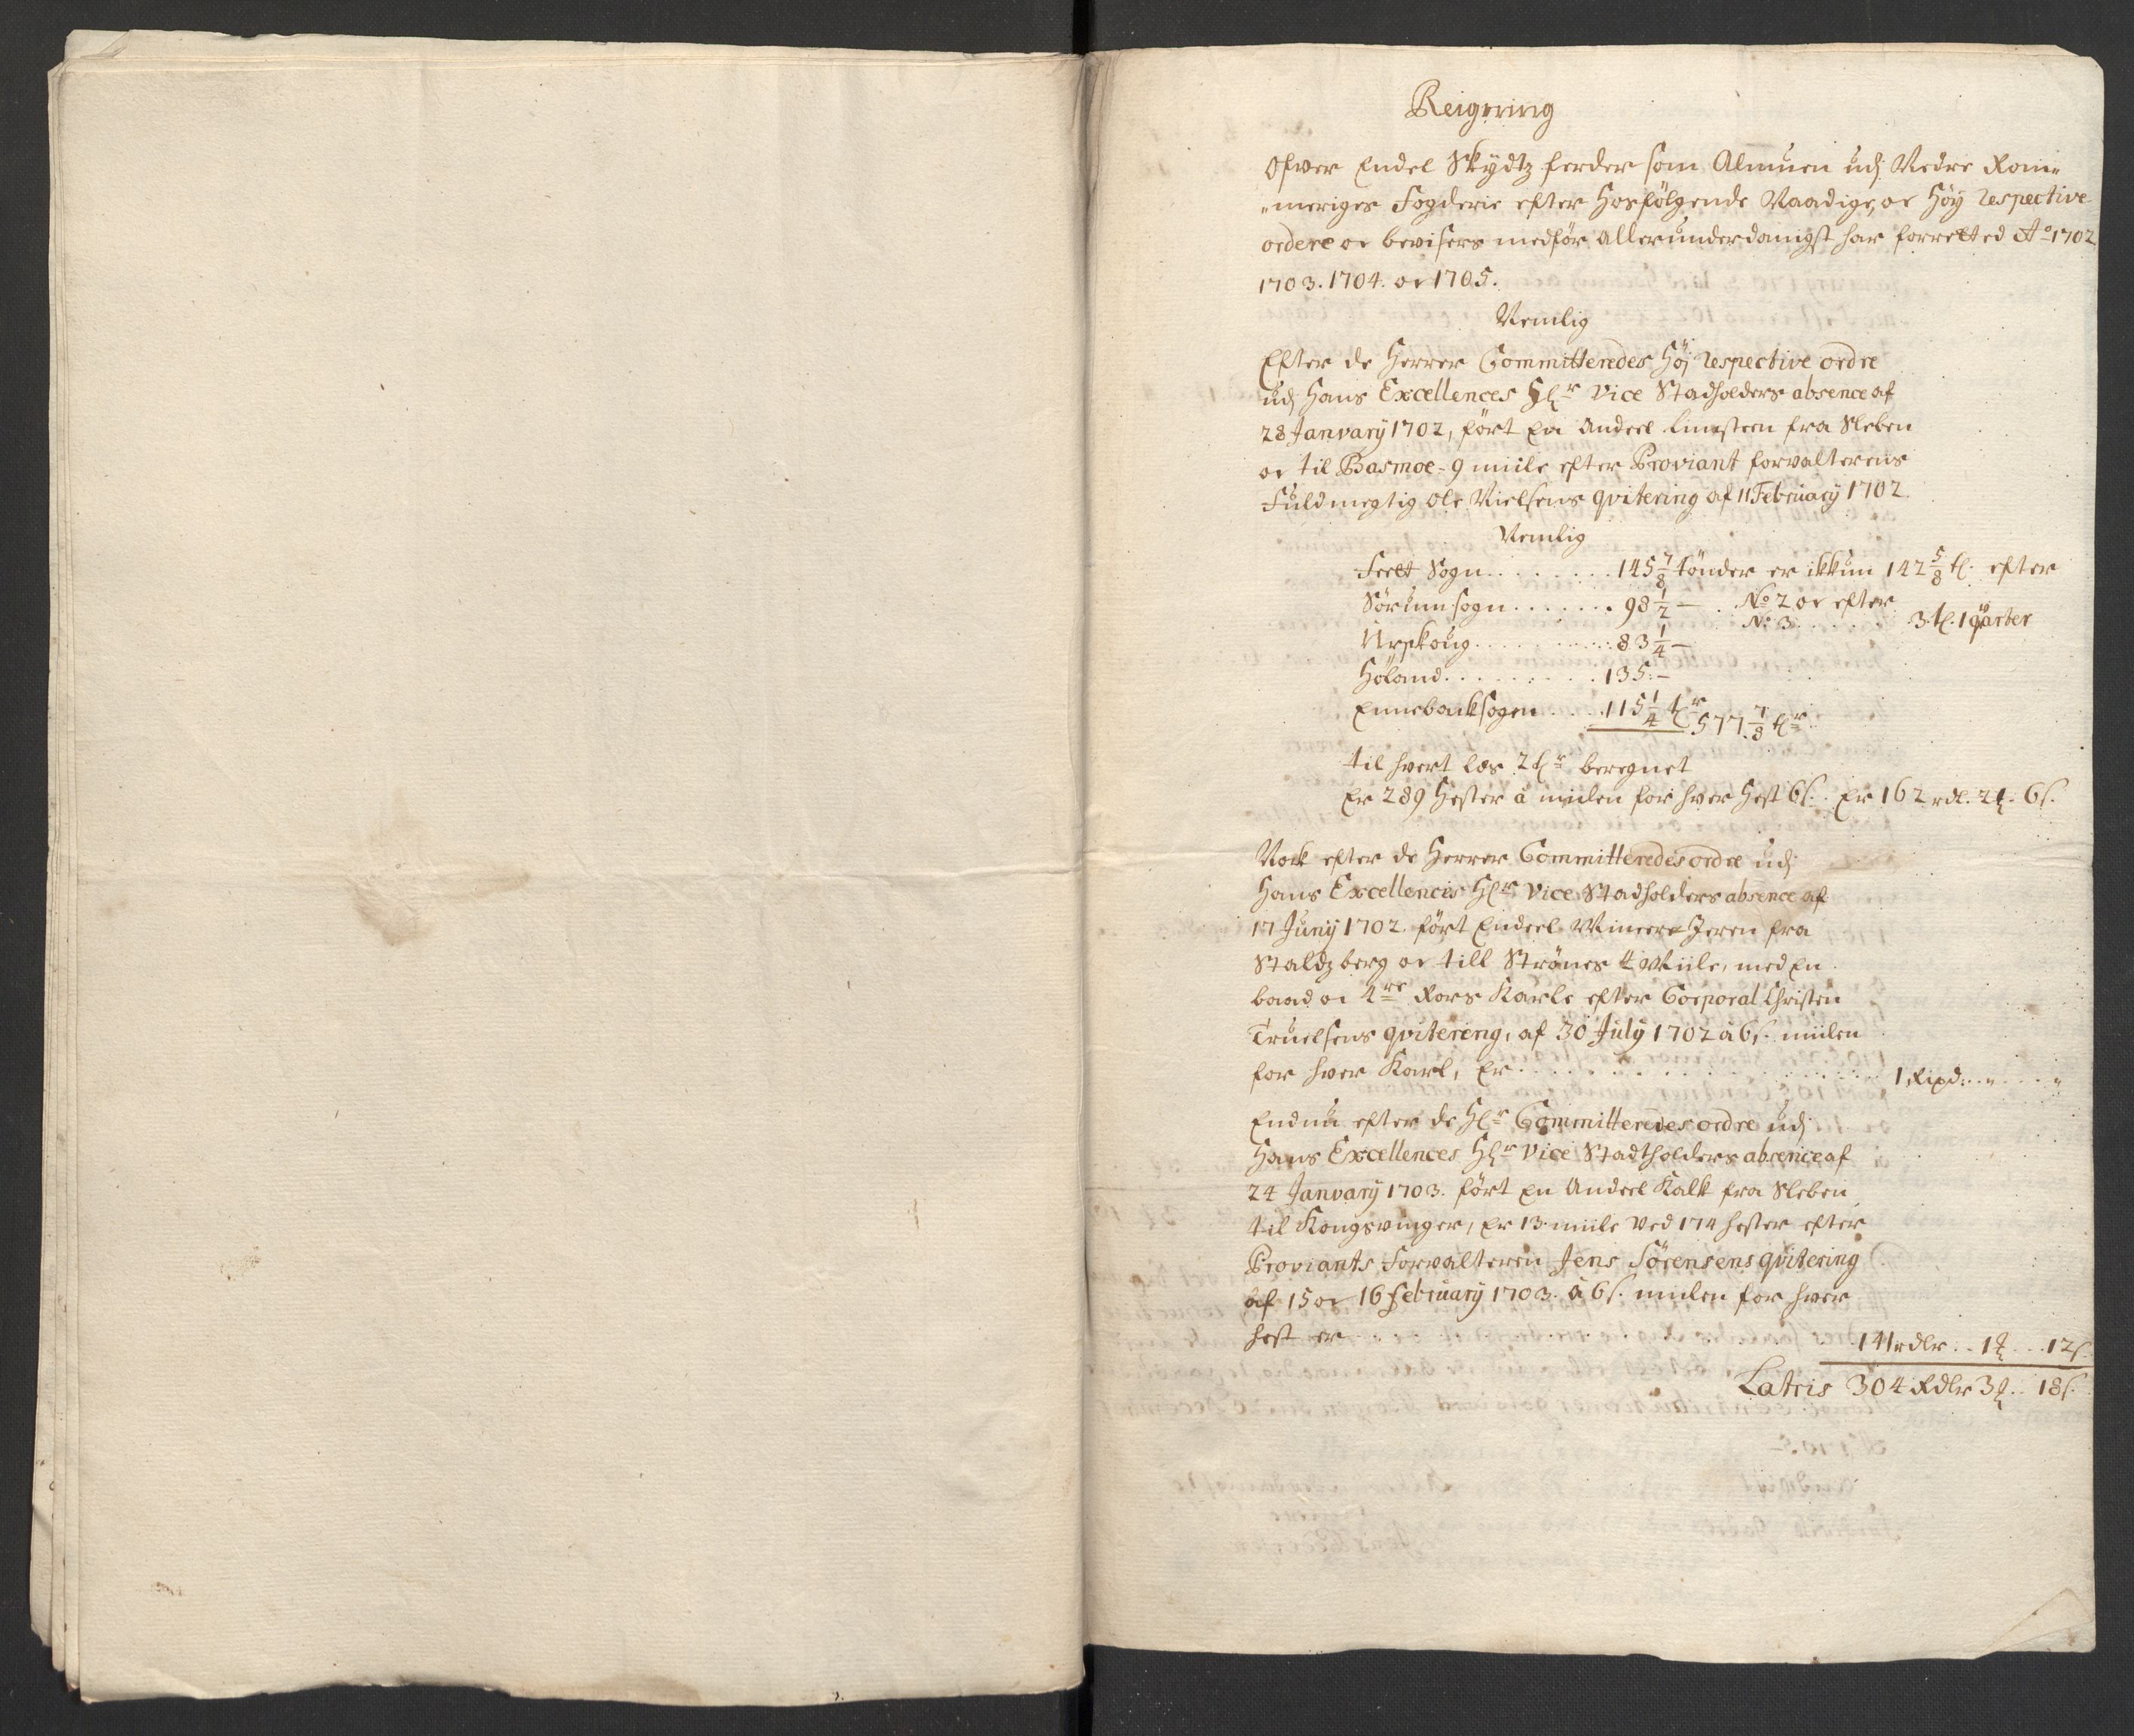 Reigning
Ofver Endel Skydtz ferder som Almuen udj Nedre Rom„
„meriges Fogderie efter Hosfölgende Naadige, oc Höy Respective
ordere oc beviisers medför allerunderdanigst har forretted Ao 1702
1703. 1704. oc 1705.
Nemlig
Efter de Herrer Committeredes Höj Respective ordre
udj Hans Excellences Hlr Vice Stadholders absence af
28 January 1702, fört En Andeel Limsteen fra Sleben
oc til Basmoe - 9 miile efter Proviant forvalterens
Fuldmegtig Ole Nielsens qvitering af 11 February 1702
Nemlig
Feet Sogn . . . . . . . 145 7/8 tönder er ikkun 142 5/8 tl. efter
Sörum sogn . . . . . . . 98 1/2 — No 2 oc efter
No 3 . . . . . 3 tl. 1 qvarter
Urskoug . . . . . . . . . 83 1/4 —
Höland . . . . . . . . . 135. —
Ennebach sogen . . . . 115 1/4 tlr 577 7/8 tlr
til hvert læs 2 tlr beregnet
Er 289 Hester â miilen for hver Hest 6 s. Er 162 rdl. 2 ƶ. 6 s.
Nock efter de Herrer Committeredes ordre udj
Hans Excellencis Hlr Vice Stadholders absence af
17 Juny 1702. fört Endeel Mineere Jeren fra
Staldzberg oc till Strönes 4 Miile, med En
baad oc 4re Rors Karle efter Corporal Christen
Truelsens qvitereng, af 30 July 1702 â 6 s. miilen
for hver Karl, Er . . . . . . . . . . . 1 Rixd: „ . . . „
Endnu efter de Hlr Committeredes ordre udj
Hans Excellences Hlr Vice Stadtholders absence af
24 January 1703. fört En Andeel Kalk fra Sleben
til Kongsvinger, Er 13 miile Ved 174 hester efter
Proviants Forvalteren Jens Sörensens qvitering
af 15 oc 16 February 1703. â 6 s. miilen for hver
hest er . . . . . . . . . . . . 141 rdlr . . 1 ƶ . . . 12 s.
Latris 304 Rdlr 3 ƶ . . 18 s.